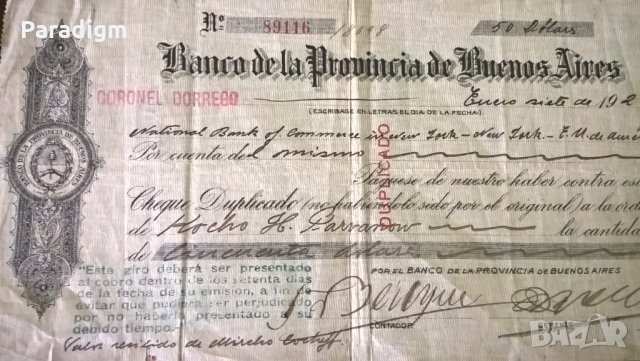 Paradigm
Nº 89116 / 18098
50 Dólars
Banco de la Provincia de Buenos Aires
CORONEL DORREGO
Enero siete de 192
(ESCRIBASE EN LETRAS EL DIA DE LA FECHA)
National Bank of Commerce in New York - New York - E.U. de
Por cuenta del mismo
Páguese de nuestro haber contra es
Cheque Duplicado (no habiéndolo sido por el original) a la ord
de Kocho H. Parvanow la cantida
de Cincuenta dólars
DUPLICADO
BANCO DE LA PROVINCIA DE BUENOS AIRES
"Este giro deberá ser presentado
al cobro dentro de los setenta días
de la fecha de su emisión, a fin de
evitar que pudiera ser perjudicado
por no haberlo presentado a su
debido tiempo.-
POR EL BANCO DE LA PROVINCIA DE BUENOS AIRES
CONTADOR
GERENTE
Valor recibido de Mircho
BAZAR